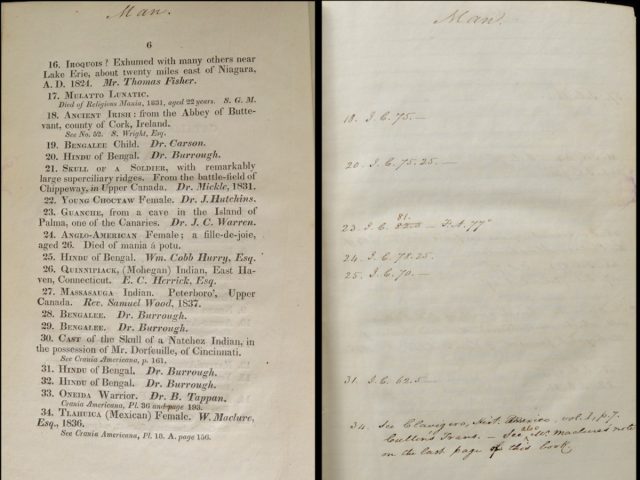 Man.
6
16. Iroquois? Exhumed with many others near
Lake Erie, about twenty miles east of Niagara,
A. D. 1824. Mr. Thomas Fisher.
17. Mulatto Lunatic.
Died of Religious Mania, 1831, aged 22 years. S. G. M.
18. Ancient Irish: from the Abbey of Butte-
vant, county of Cork, Ireland.
See No. 52. S. Wright, Esq.
19. Bengalee Child. Dr. Carson.
20. Hindu of Bengal. Dr. Burrough.
21. Skull of a Soldier, with remarkably
large superciliary ridges. From the battle-field of
Chippeway, in Upper Canada. Dr. Mickle, 1831.
22. Young Choctaw Female. Dr. J. Hutchins.
23. Guanche, from a cave in the Island of
Palma, one of the Canaries. Dr. J. C. Warren.
24. Anglo-American Female; a fille-de-joie,
aged 26. Died of mania á potu.
25. Hindu of Bengal. Wm. Cobb Hurry, Esq.
26. Quinnipiack, (Mohegan) Indian, East Ha-
ven, Connecticut. E. C. Herrick, Esq.
27. Massasauga Indian. Peterboro', Upper
Canada. Rev. Samuel Wood, 1837.
28. Bengalee. Dr. Burrough.
29. Bengalee. Dr. Burrough.
30. Cast of the Skull of a Natchez Indian, in
the possession of Mr. Dorfeuille, of Cincinnati.
See Crania Americana, p. 161.
31. Hindu of Bengal. Dr. Burrough.
32. Hindu of Bengal. Dr. Burrough.
33. Oneida Warrior. Dr. B. Tappan.
Crania Americana, Pl. 36 and page 193.
34. Tlahuica (Mexican) Female. W. Maclure,
Esq., 1836.
See Crania Americana, Pl. 18. A. page 156.
Man.
18. I.C. 75.—
20. I.C. 75.25.—
81.
23. I.C. — F.A. 77°
24. I.C. 78.25.
25. I.C. 70.—
31. I.C. 62.5—
34. See Clavigero, Hist. Mexico. vol. 1, p. 7.
Cullen's Trans. — See also W. Maclure's note
on the last page of this book.